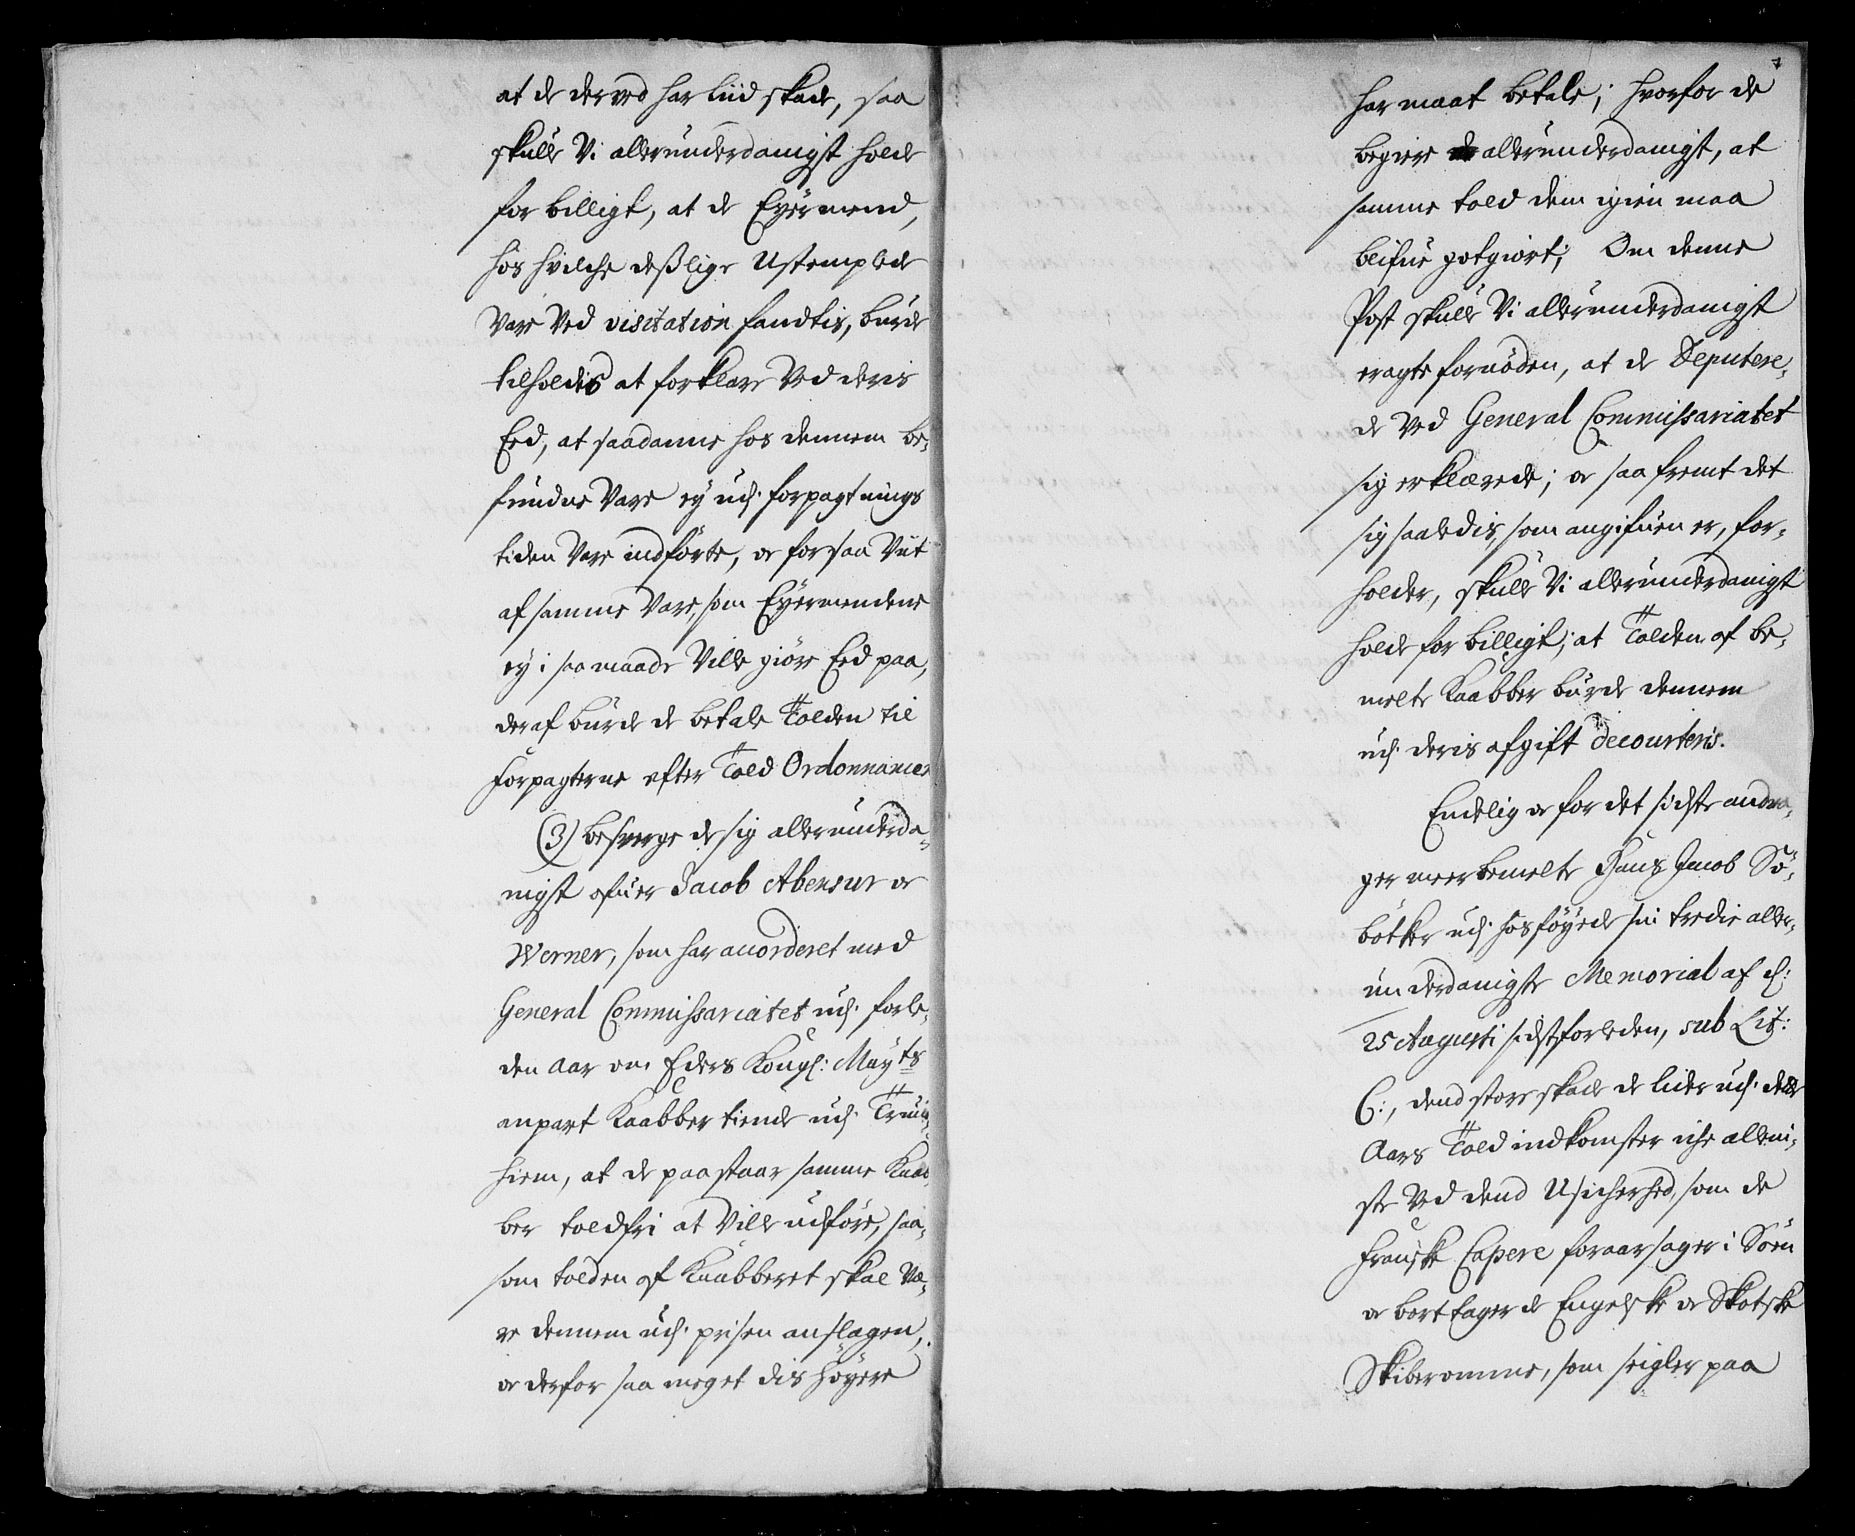 at de derved har liid skade, saa
skulle Vi allerunderdanigst holde
for billigt, at de Eyermend,
hos hvilche deßlige Ustemplede
Vare Ved visitation fandtis, burde
tilholdis at forklare Ved deris
Eed, at saadanne hos dennem be-
fundne Vare ey udj forpagtnings
tiden Vare indførte, oc for saa Vit
af samme Vare, som Eyermendene
ey i saa maade Ville giøre Eed paa,
deraf burde de betale Tolden til
Forpagterne efter Told Ordonnancen
(3) besverge de sig allerunderda-
nigst ofuer Jacob Abensur oc
Werner, som har accorderet med
General Commissariatet udj forle-
den Aar om Eders Kongl: Mayts
anpart Kaabber tiende udj Trund-
hiem, at de paastaar samme Kaab-
ber toldfri at Ville udføre, saa-
som tolden af Kaabberet skal Væ-
re dennem udj prisen anslagen,
oc derfor saa meget dis høyere
har maat betale; hvorfor de
begiere allerunderdanigst, at
samme told dem igien maa
blifue gotgiort; Om denne
Post skulle Vi allerunderdanigst
eragte fornøden, at de Deputere-
de Ved General Commissariatet
sig erklærede; oc saa fremt det
sig saaledis, som angifuen er, for-
holder, skulle Vi allerunderdanigst
holde for billigt, at Tolden af be-
melte Kaabber burde dennem
udj deris afgift decourteris.
Endelig oc for det sidste andra-
ger meerbemelte Hans Jacob Sö-
bötker udj hosføyede sin tredie aller-
underdanigste Memorial af d:
25 Augusti sidstforleden, sub Lit:
C:, dend store skade de lider udj dette
Aars Told indkomster iche alleni-
ste Ved dend Usicherhed, som de
Franske Capere foraarsager i Søen
oc bort tager de Engelske oc Skotske
Skiberomme, som seigler paa